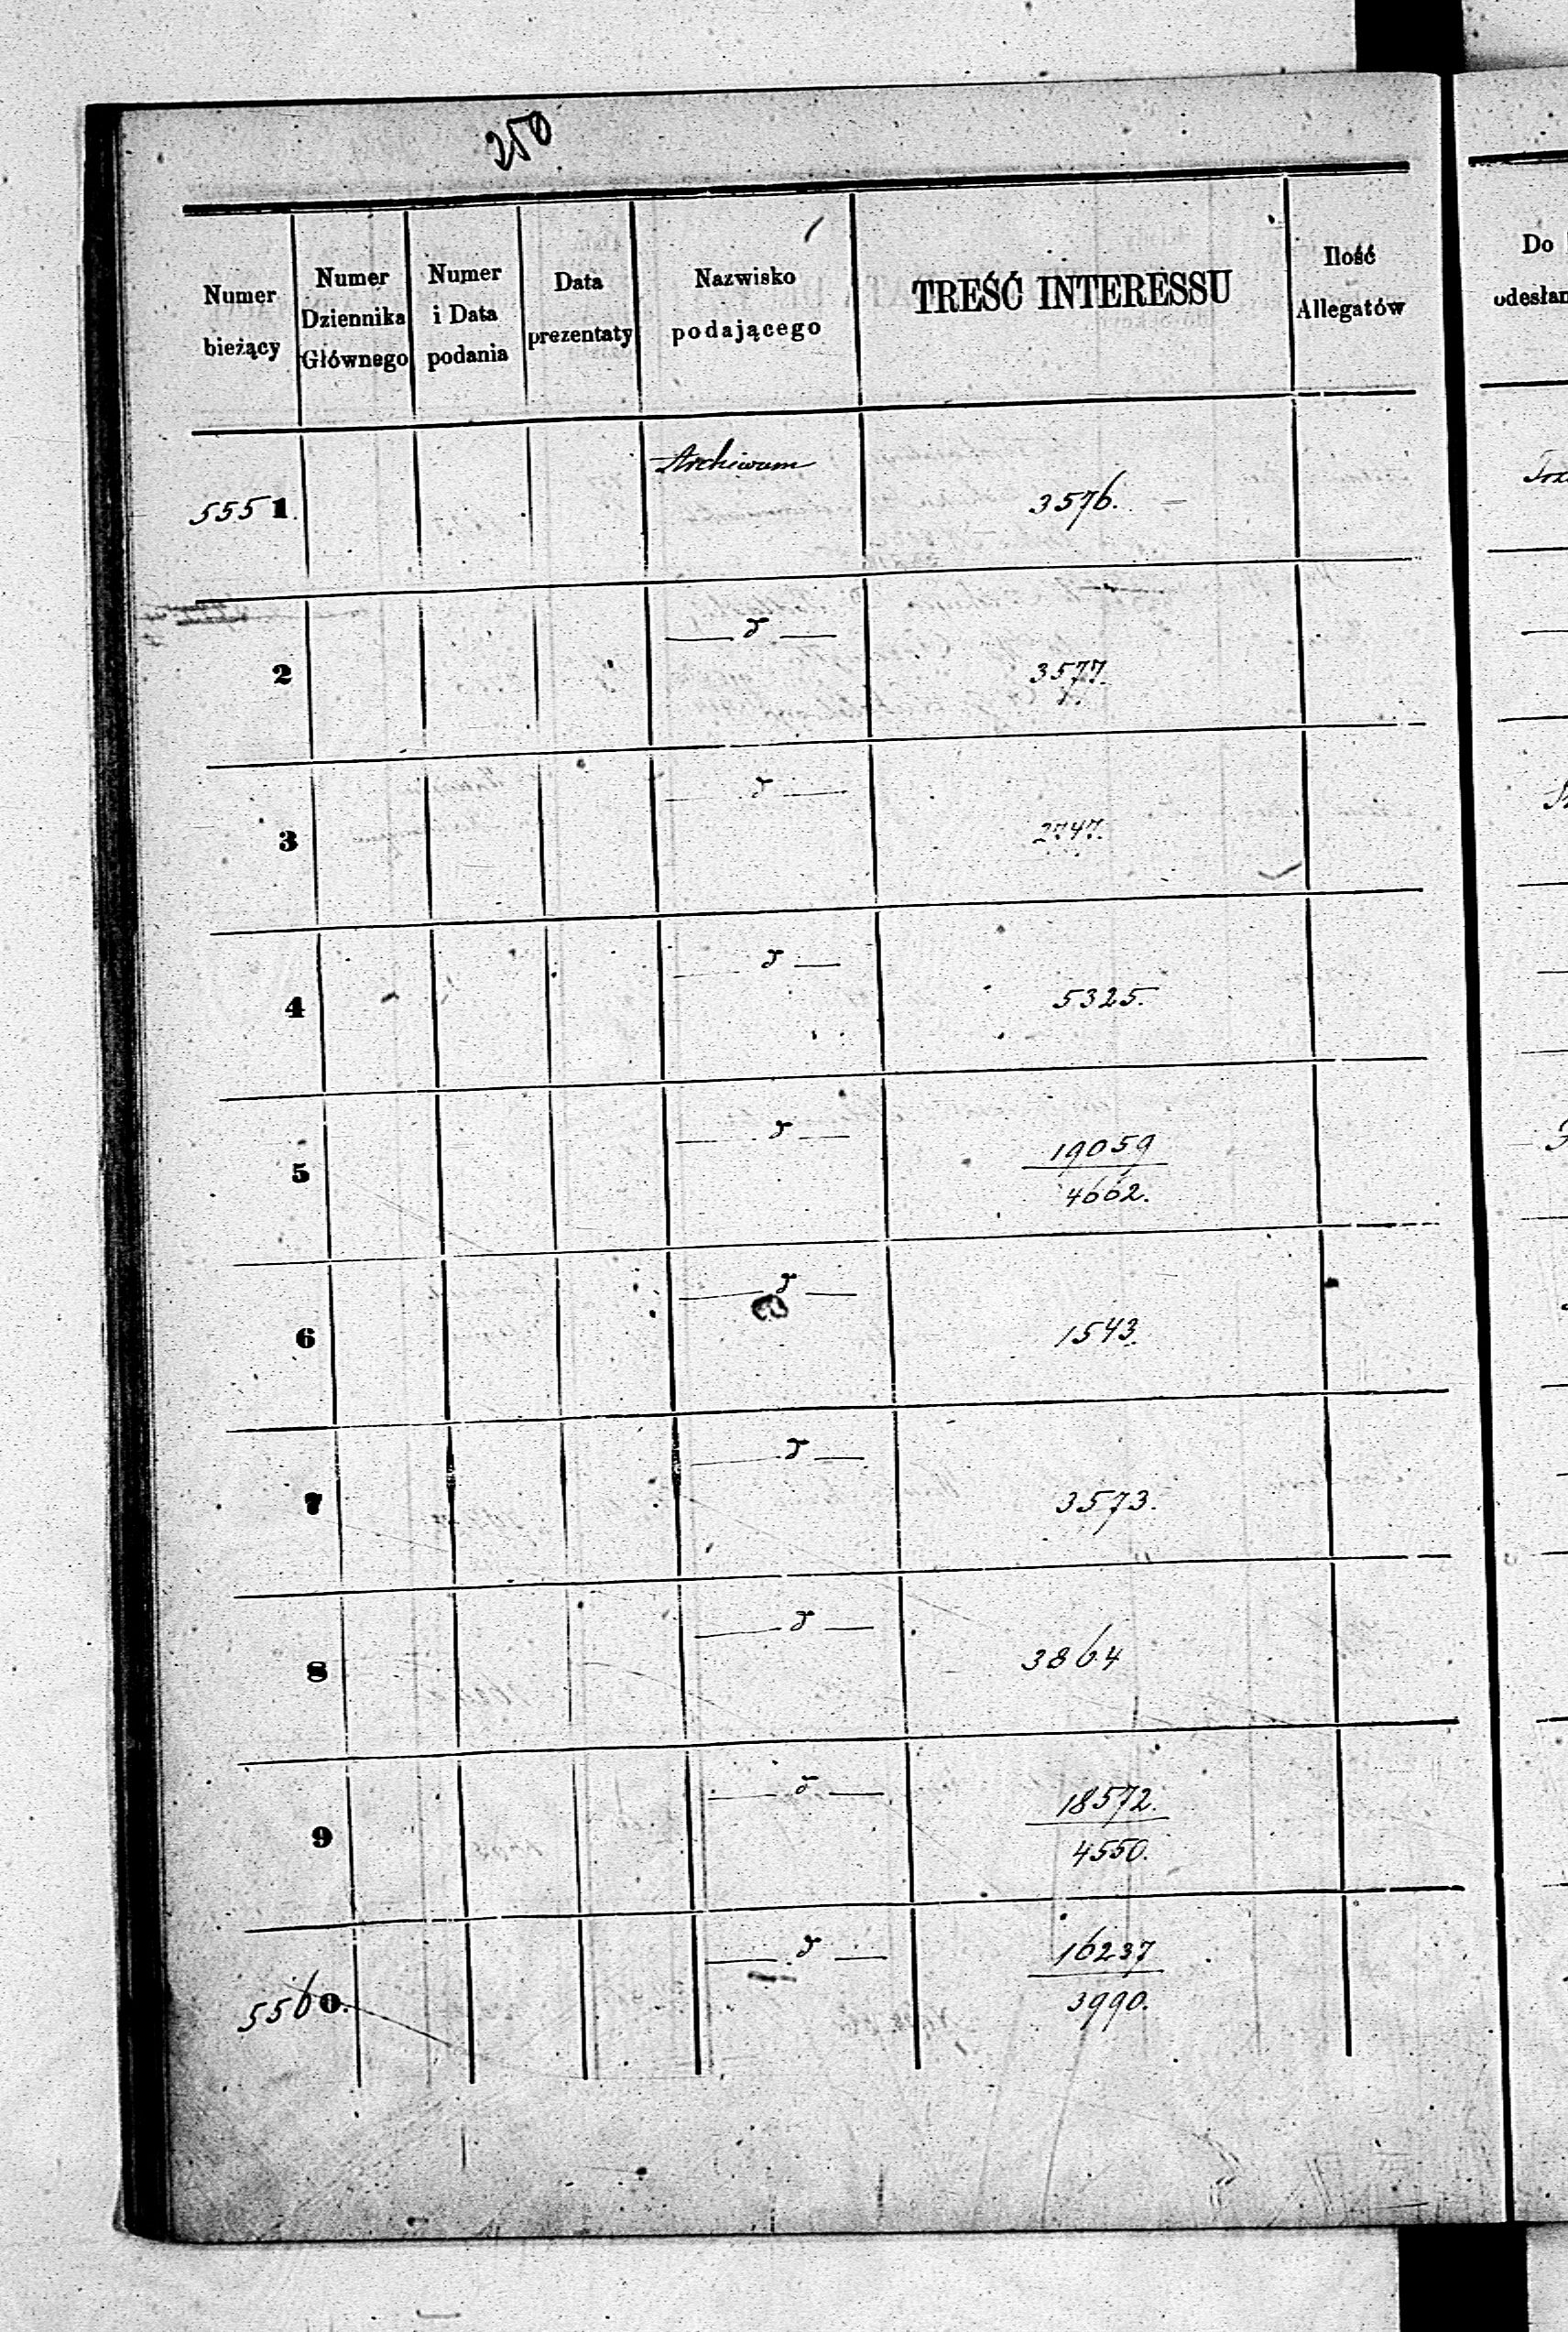 250
Numer bieżący | Numer Dziennika Głównego | Numer i Data podania | Data prezentaty | Nazwisko podającego | TREŚĆ INTERESSU | Ilość Allegatów | Do
5551. | Archiwum | 3576.
2 | d | 3577.
3 | d | 2747.
4 | d | 5325.
5 | d | 19059
4662.
6 | d | 1543.
7 | d | 3573.
8 | d | 3864
9 | d | 18572.
4550.
5560. | d | 16237
3990.